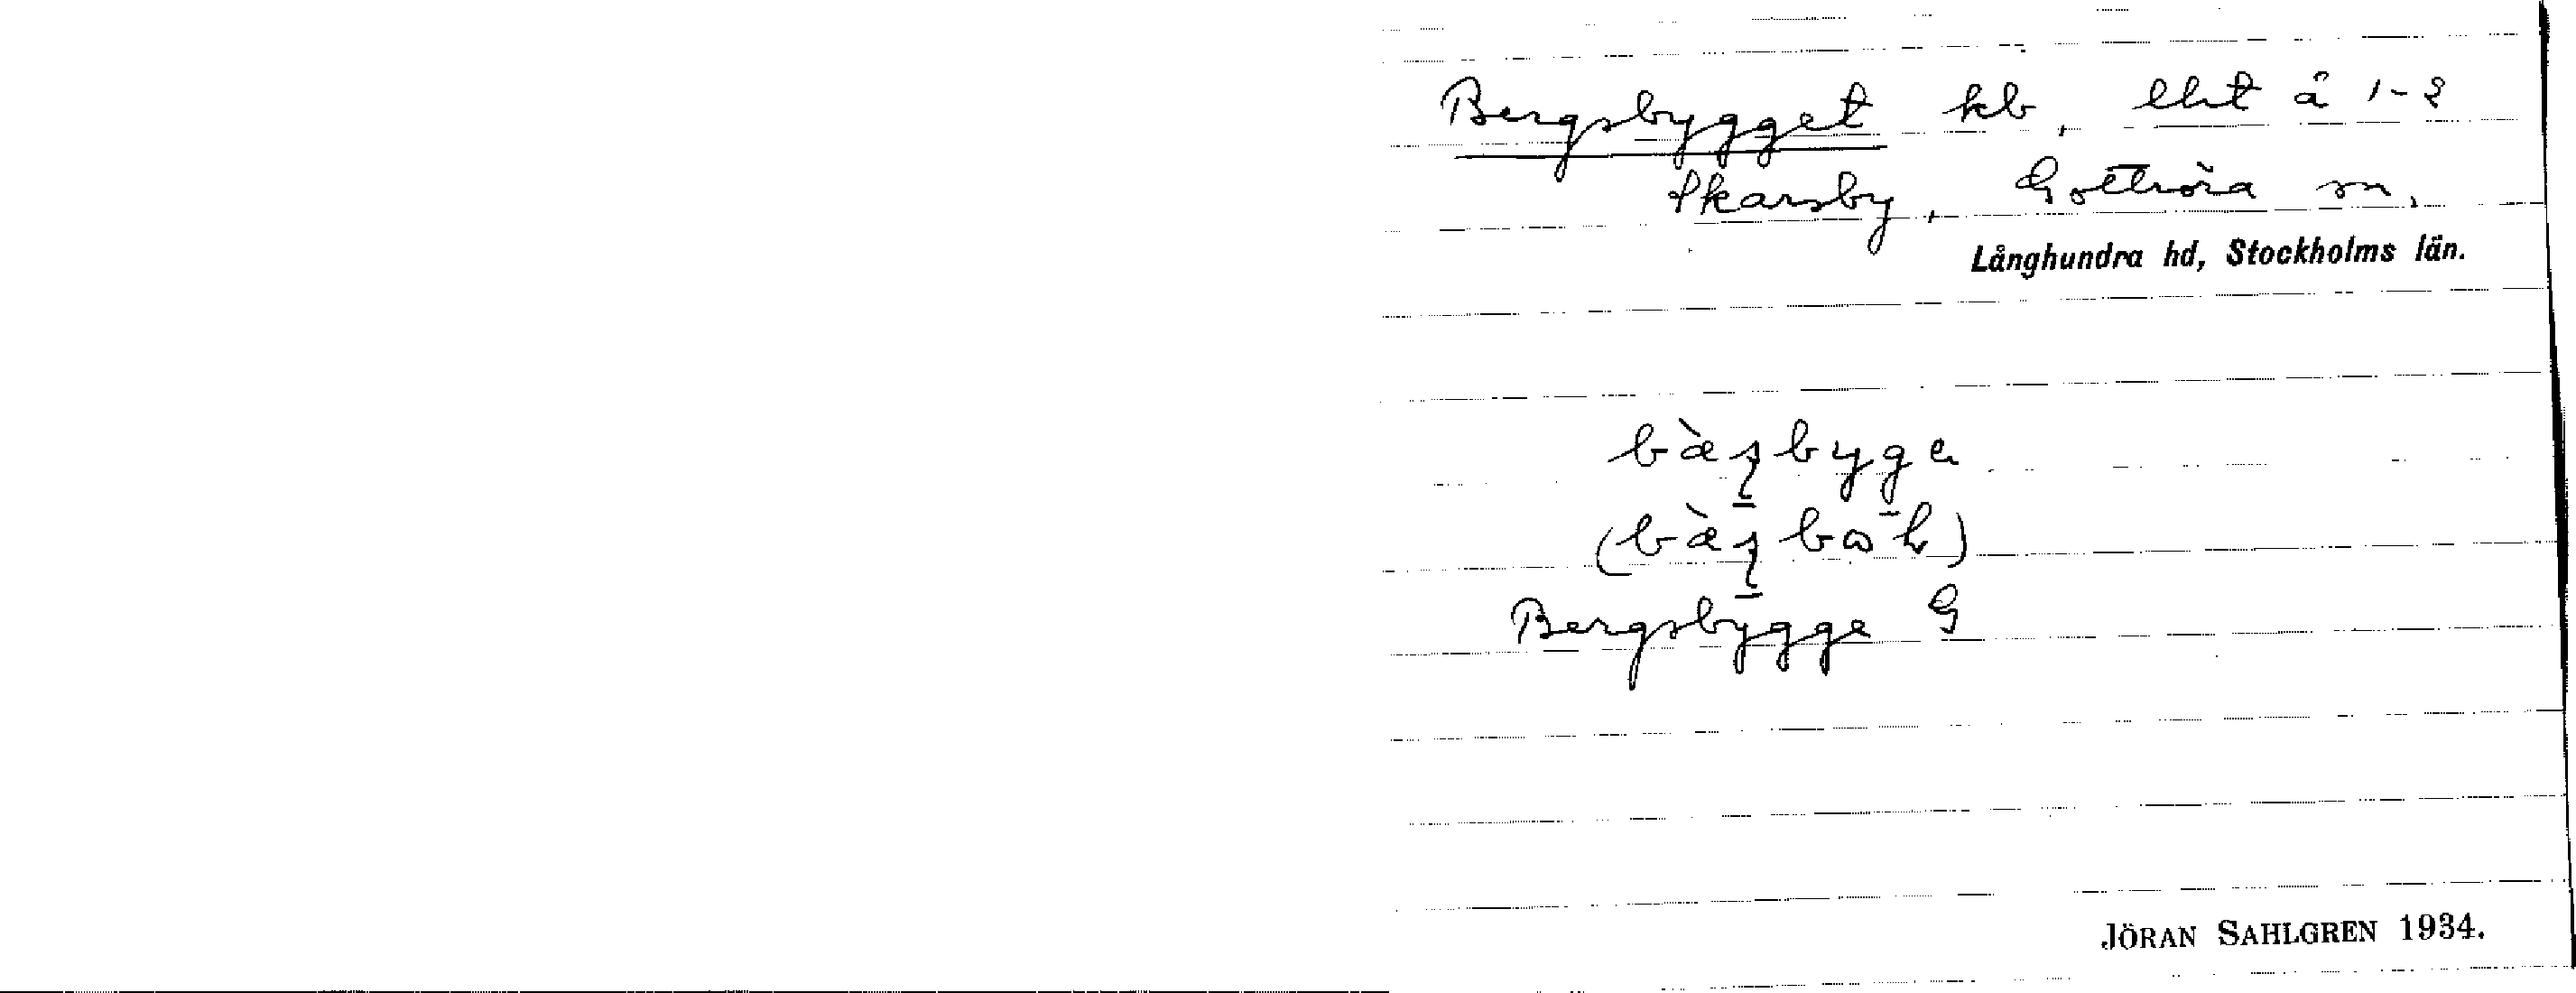 Bergsbygget kb, lht å 1-2
Skarsby, Gottröra sn,
Långhundra hd, Stockholms län.
Bergsbygge G
JÖRAN SAHLGREN 1934.